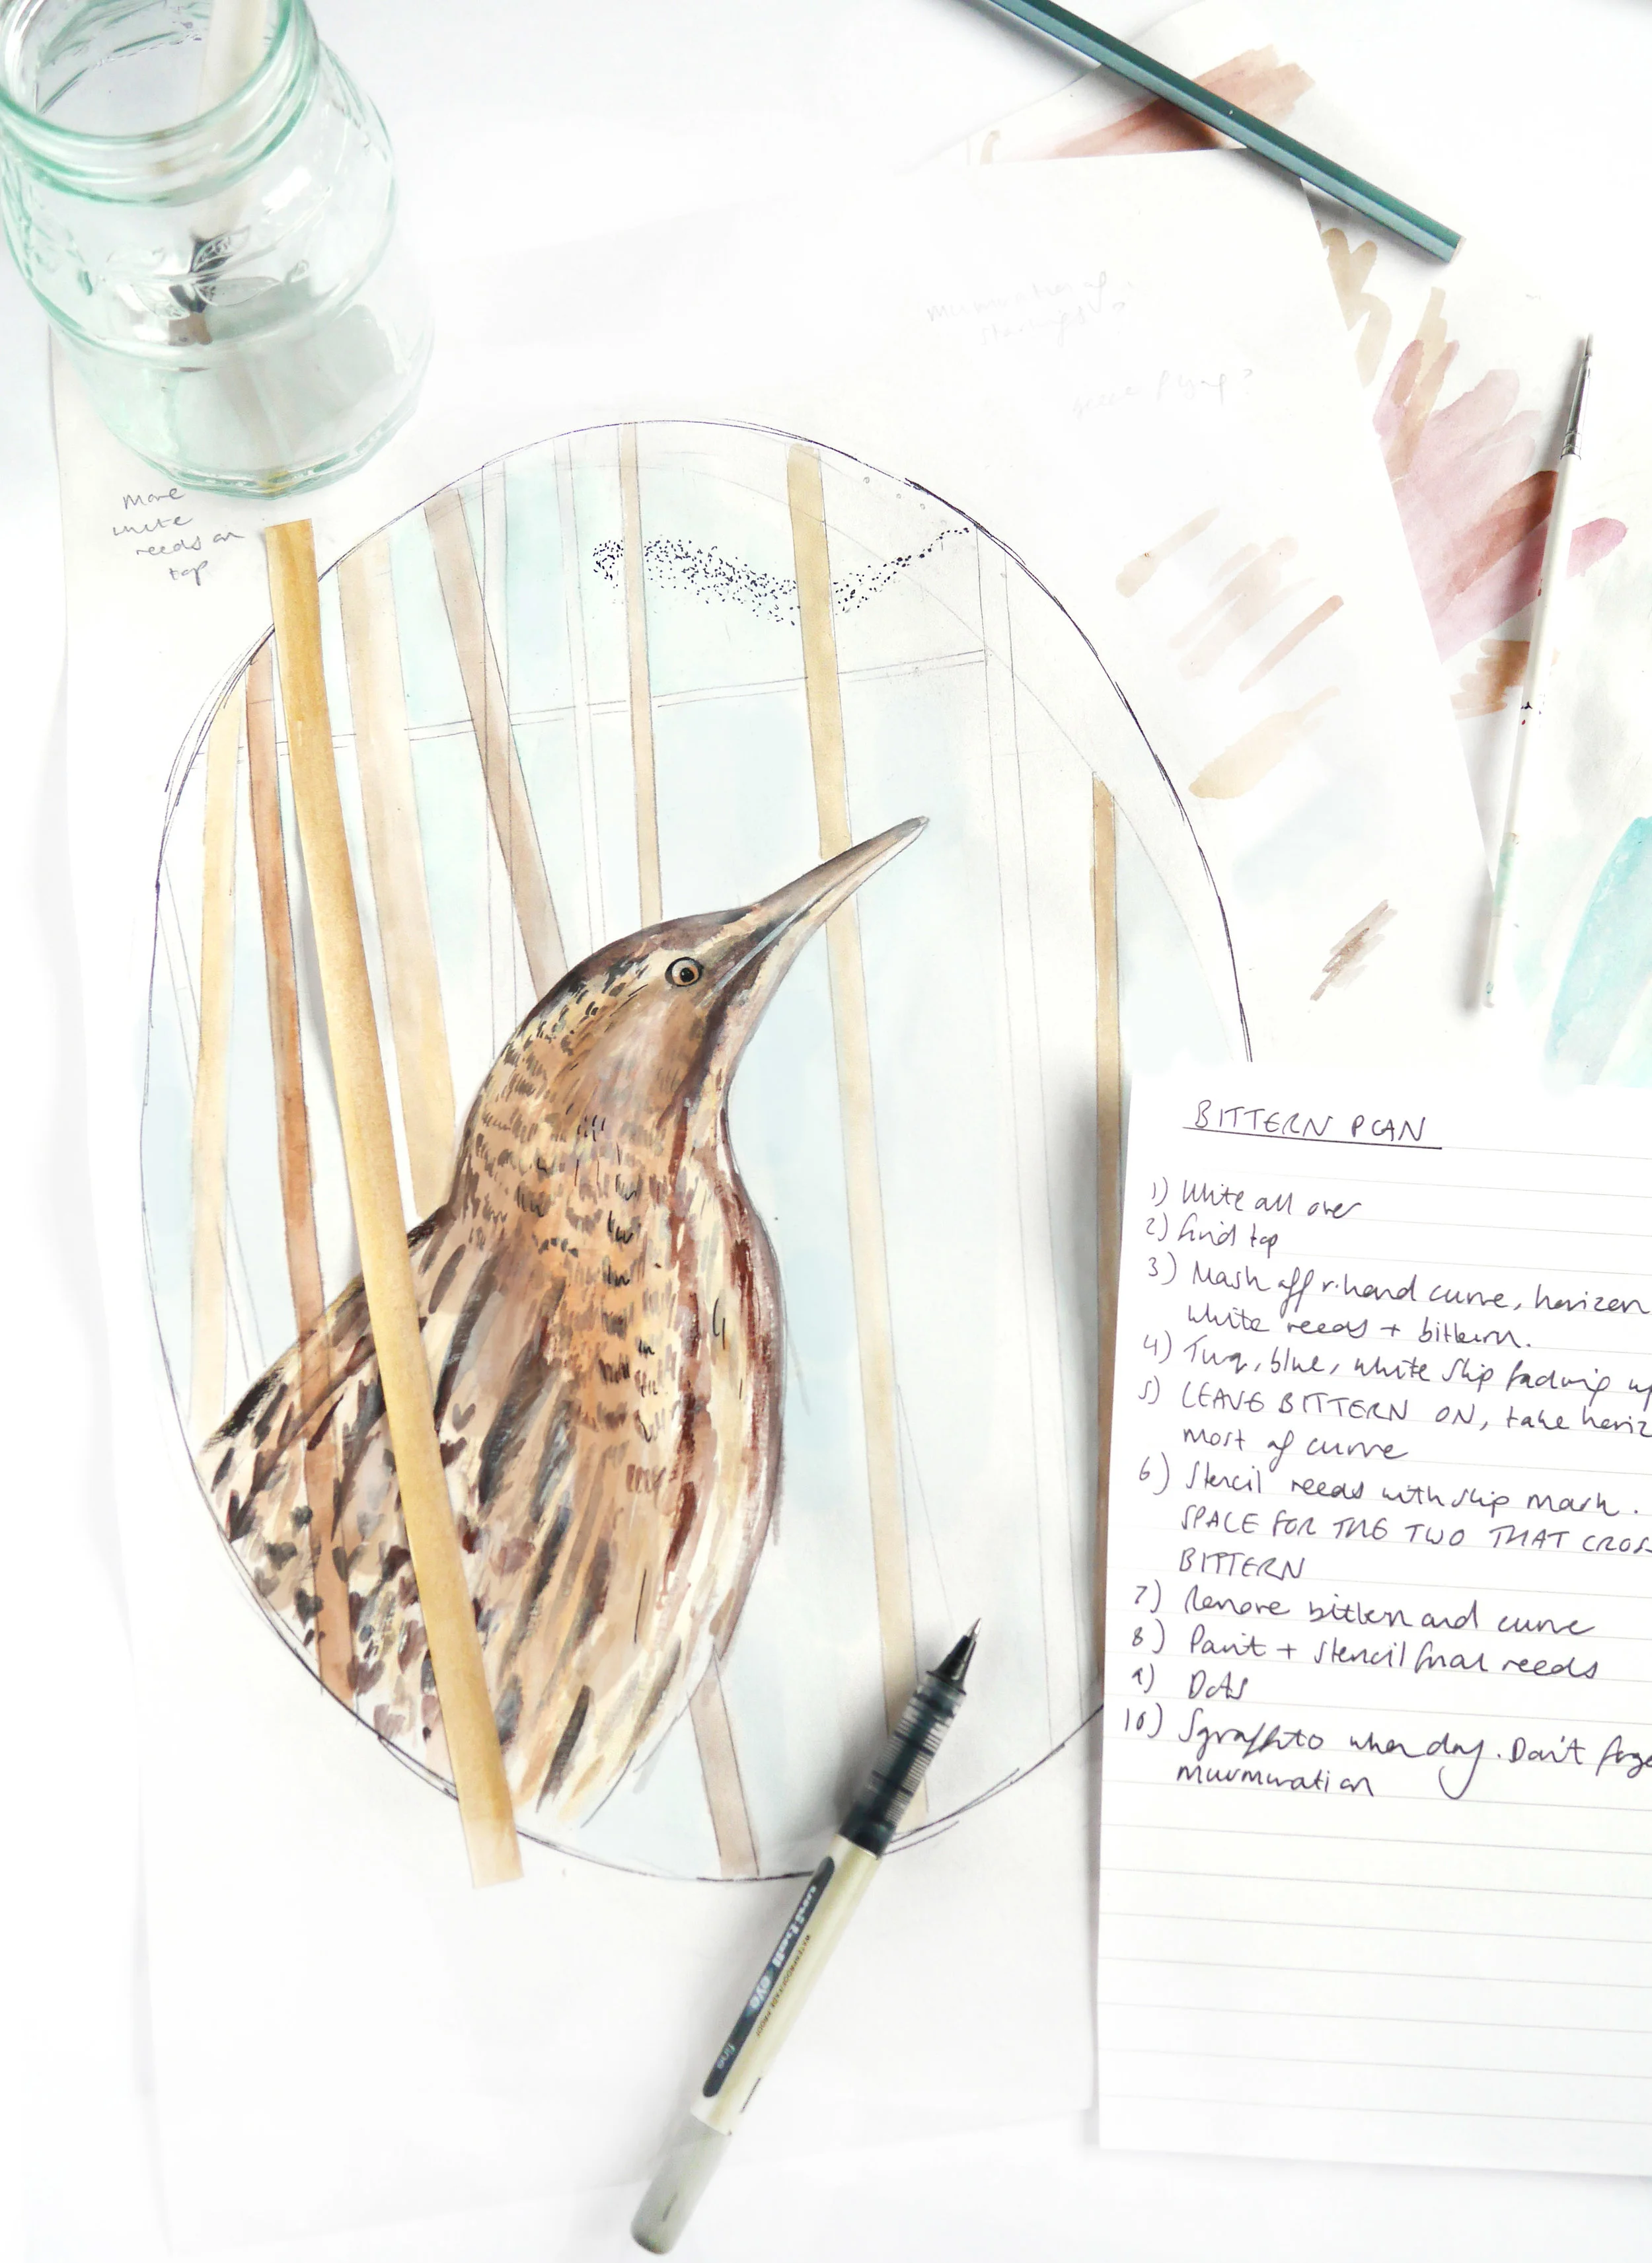 More
white
reeds on
top
Murmuration of
starlings?
flying?
BITTERN PLAN
1) White all over
2) Grid top
3) Mask off r.hand curve, horizon
white reeds + bittern.
4) Turq, blue, white slip fading up
5) LEAVE BITTERN ON, take horiz
most of curve
6) Stencil reeds with slip mark.
SPACE FOR THE TWO THAT CROSS
BITTERN
7) Remove bittern and curve
8) Paint + stencil final reeds
9) Dots
10) Sgraffito when dry. Don't forge
murmuration
uni-ball eye
fine